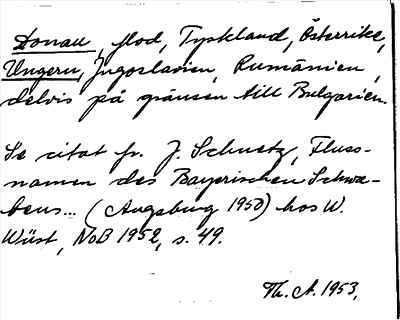 Donau, flod, Tyskland, Österrike,
Ungern, Jugoslavien, Rumänien,
delvis på gränsen till Bulgarien.
Se citat fr. J. Schnetz, Fluss-
namen des Bayerischen Schwa-
bens... (Augsburg 1950) hos W.
Wüst, NoB 1952, s. 49.
Th. A. 1953,